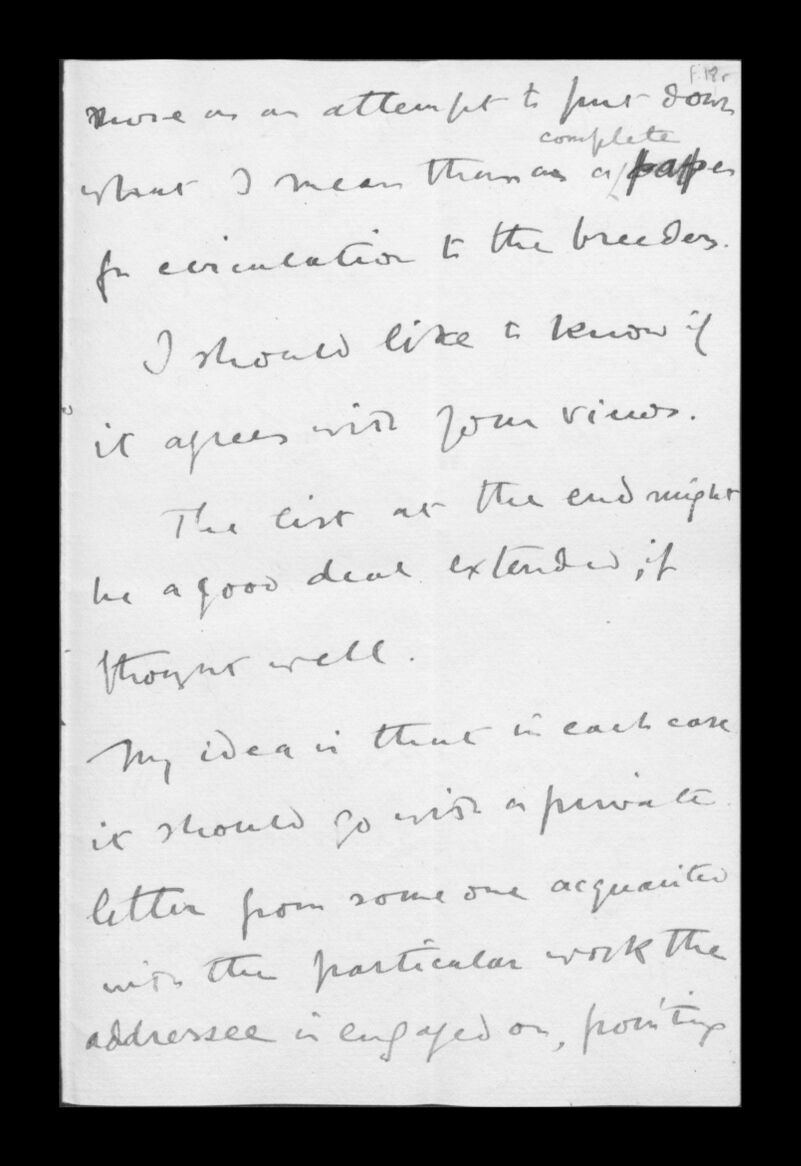 f.18r
more as an attempt to put down
complete
what I mean than as a paper
for circulation to the breeders.
I should like to know if
it agrees with your views.
The list at the end might
be a good deal extended, if
thought well.
My idea is that in each case
it should go with a private
letter from some one acquainted
with the particular work the
addressee is engaged on, pointing